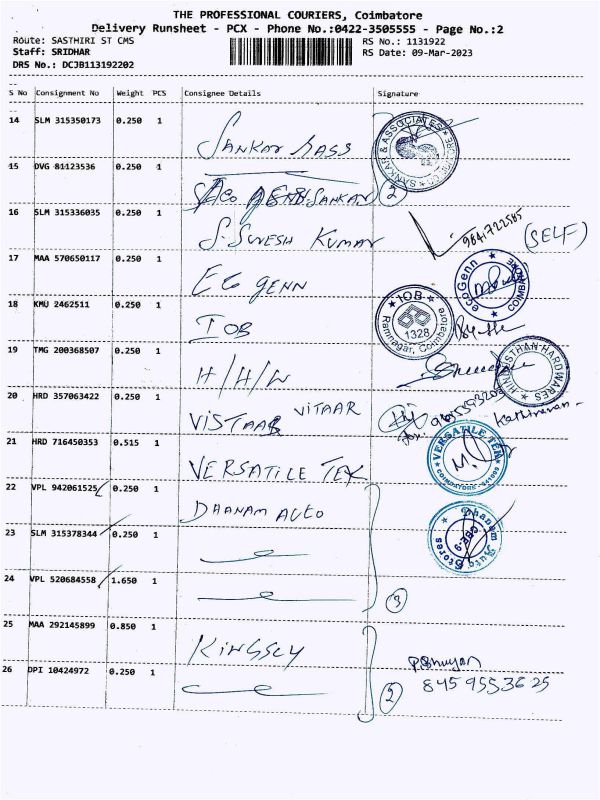 THE PROFESSIONAL COURIERS, Coimbatore
Delivery Runsheet - PCX - Phone No.:0422-3505555 - Page No.:2
Route: SASTHIRI ST CMS RS No.: 1131922
Staff: SRIDHAR RS Date: 09-Mar-2023
DRS No.: DCJB113192202
S No Consignment No Weight PCS Consignee Details Signature
14 SLM 315350173 0.250 1
SANKAR & ASSOCIATES
15 DVG 81123536 0.250 1
SANKAR 2
16 SLM 315336035 0.250 1
S. SURESH KUMAR 9841722585 (SELF)
17 MAA 570650117 0.250 1
ECO GENN eco Genn
18 KMU 2462511 0.250 1
IOB IOB 1328 Ramnagar, Coimbatore
19 TMG 200368507 0.250 1
H/H/W HINDUSTHAN HARDWARES
20 HRD 357063422 0.250 1
VISTAAR VITAAR Kathiravan
21 HRD 716450353 0.515 1
VERSATILE TEX VERSATILE TEX COIMBATORE
22 VPL 942061525 0.250 1
DAANAM AUTO Dhanam Auto Stores CBE-9
23 SLM 315378344 0.250 1
24 VPL 520684558 1.650 1
3
25 MAA 292145899 0.850 1
KINGSLY
26 DPI 10424972 0.250 1
2 8459553625